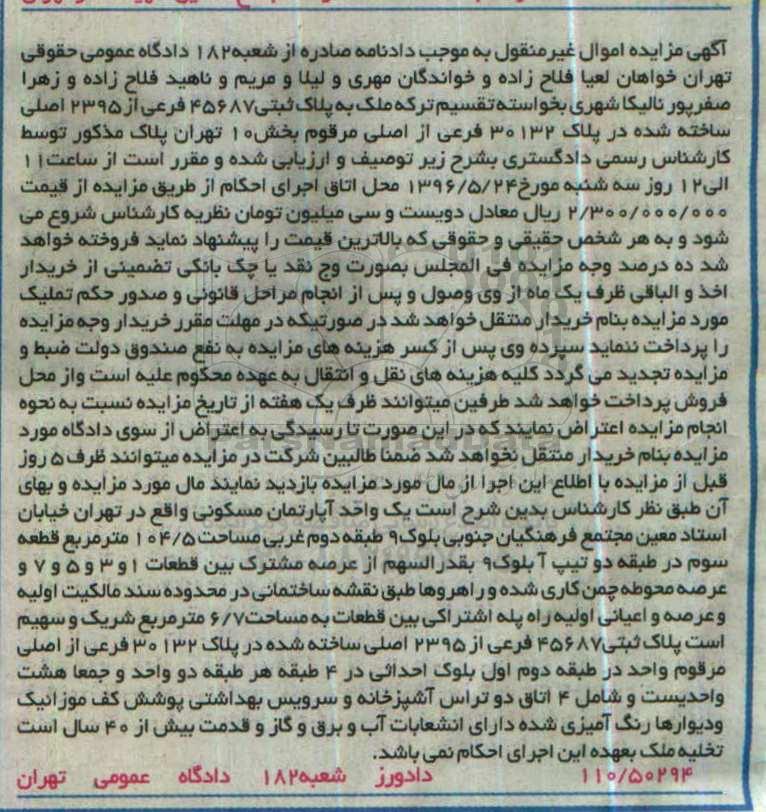 آگهی مزایده اموال غیرمنقول به موجب دادنامه صادره از شعبه۱۸۲ دادگاه عمومی حقوقی
تهران خواهان لعیا فلاح زاده و خواندگان مهری و لیلا و مریم و ناهید فلاح زاده و زهرا
صفرپور نالیکا شهری بخواسته تقسیم ترکه ملک به پلاک ثبتی۴۵۶۸۷ فرعی از ۲۳۹۵ اصلی
ساخته شده در پلاک ۳۰۱۳۲ فرعی از اصلی مرقوم بخش۱۰ تهران پلاک مذکور توسط
کارشناس رسمی دادگستری بشرح زیر توصیف و ارزیابی شده و مقرر است از ساعت۱۱
الی۱۲ روز سه شنبه مورخ۱۳۹۶/۵/۲۴ محل اتاق اجرای احکام از طریق مزایده از قیمت
۲/۳۰۰/۰۰۰/۰۰۰ ریال معادل دویست و سی میلیون تومان نظریه کارشناس شروع می
شود و به هر شخص حقیقی و حقوقی که بالاترین قیمت را پیشنهاد نماید فروخته خواهد
شد ده درصد وجه مزایده فی المجلس بصورت وج نقد یا چک بانکی تضمینی از خریدار
اخذ و الباقی ظرف یک ماه از وی وصول و پس از انجام مراحل قانونی و صدور حکم تملیک
مورد مزایده بنام خریدار منتقل خواهد شد در صورتیکه در مهلت مقرر خریدار وجه مزایده
را پرداخت ننماید سپرده وی پس از کسر هزینه های مزایده به نفع صندوق دولت ضبط و
مزایده تجدید می گردد کلیه هزینه های نقل و انتقال به عهده محکوم علیه است واز محل
فروش پرداخت خواهد شد طرفین میتوانند ظرف یک هفته از تاریخ مزایده نسبت به نحوه
انجام مزایده اعتراض نمایند که در این صورت تا رسیدگی به اعتراض از سوی دادگاه مورد
مزایده بنام خریدار منتقل نخواهد شد ضمنا طالبین شرکت در مزایده میتوانند ظرف ۵ روز
قبل از مزایده با اطلاع این اجرا از مال مورد مزایده بازدید نمایند مال مورد مزایده و بهای
آن طبق نظر کارشناس بدین شرح است یک واحد آپارتمان مسکونی واقع در تهران خیابان
استاد معین مجتمع فرهنگیان جنوبی بلوک۹ طبقه دوم غربی مساحت۱۰۴/۵ مترمربع قطعه
سوم در طبقه دو تیپ آ بلوک۹ بقدرالسهم از عرصه مشترک بین قطعات ۱و ۳ و ۵ و ۷ و
عرصه محوطه چمن کاری شده و راهروها طبق نقشه ساختمانی در محدوده سند مالکیت اولیه
وعرصه و اعیانی اولیه راه پله اشتراکی بین قطعات به مساحت۶/۷ مترمربع شریک و سهیم
است پلاک ثبتی۴۵۶۸۷ فرعی از ۲۳۹۵ اصلی ساخته شده در پلاک ۳۰۱۳۲ فرعی از اصلی
مرقوم واحد در طبقه دوم اول بلوک احداثی در ۴ طبقه هر طبقه دو واحد و جمعا هشت
واحدیست و شامل ۴ اتاق دو تراس آشپزخانه و سرویس بهداشتی پوشش کف موزائیک
ودیوارها رنگ آمیزی شده دارای انشعابات آب و برق و گاز و قدمت بیش از ۴۰ سال است
تخلیه ملک بعهده این اجرای احکام نمی باشد.
۱۱۰/۵۰۲۹۴ دادورز شعبه۱۸۲ دادگاه عمومی تهران